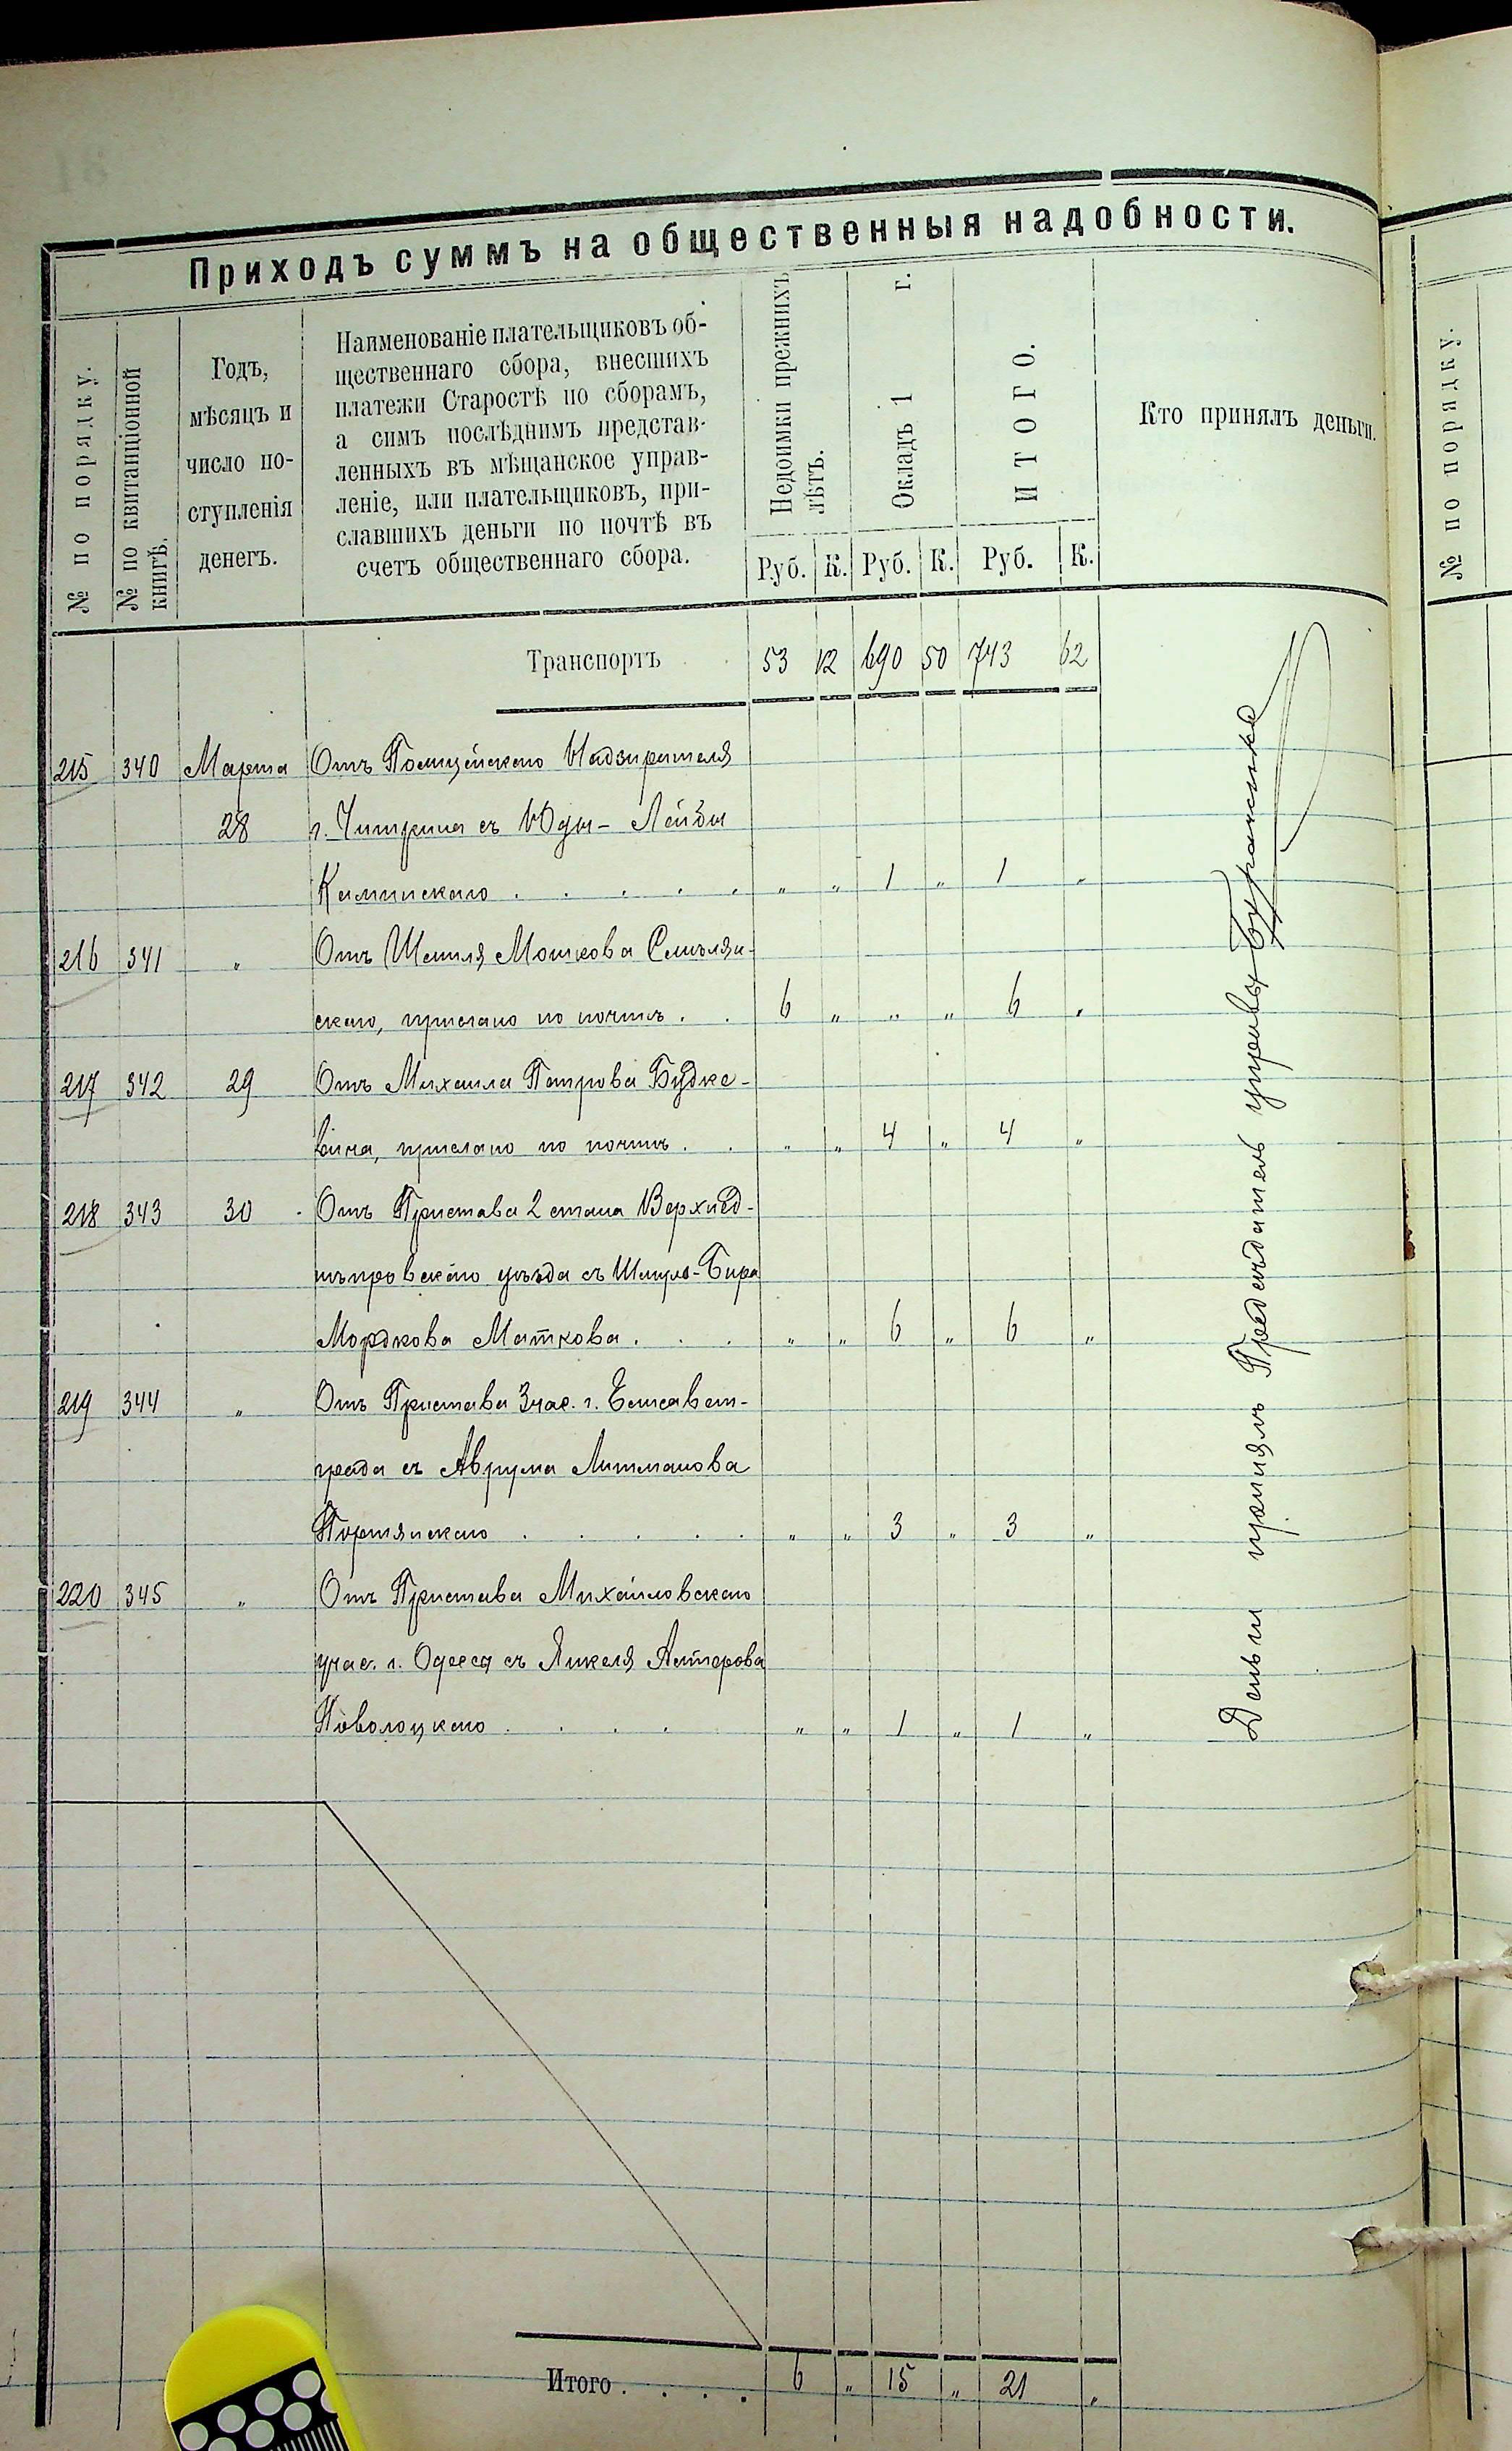 Приходъ суммъ на общественныя надобности.
№ по порядку.
№ по квитанціонной
книгѣ.
Годъ,
мѣсяцъ и
число по-
ступленія
денегъ.
Наименованіе плательщиковъ об-
щественнаго сбора, внесшихъ
платежи Старостѣ по сборамъ,
а симъ послѣднимъ представ-
ленныхъ въ мѣщанское управ-
леніе, или плательщиковъ, при-
славшихъ деньги по почтѣ въ
счетъ общественнаго сбора.
Недоимки прежнихъ
лѣтъ.
Окладъ 1 г.
ИТОГО.
Кто принялъ деньги.
Руб. К. Руб. К. Руб. К.
Транспортъ 53 12 690 50 743 62
215 340 Марта Отъ Полицейскаго Надзирателя
28 г. Чигирина съ Юды-Лейбы
" " 1 " 1 "
216 341 " Отъ Шмиля Мошкова Смилян-
скаго, прислано по почтѣ . . 6 " " " 6 "
217 342 29 Отъ Михаила Петрова Будке-
вича, прислано по почтѣ . . " " 4 " 4 "
218 343 30 Отъ Пристава 2 стана Верхнед-
нѣпровскаго уѣзда съ Шмуль-Бера
Мордкова Маткова . . . " " 6 " 6 "
219 344 " Отъ Пристава 3 час. г. Елисавет-
града съ Аврума Литманова
Портянскаго . . . . . " " 3 " 3 "
220 345 " Отъ Пристава Михайловскаго
учас. г. Одесса съ Янкеля
Поволоцкаго . . . . " " 1 " 1 "
Деньги принялъ Предсѣдатель управы
Итого . . . . 6 " 15 " 21 "
№ по порядку.